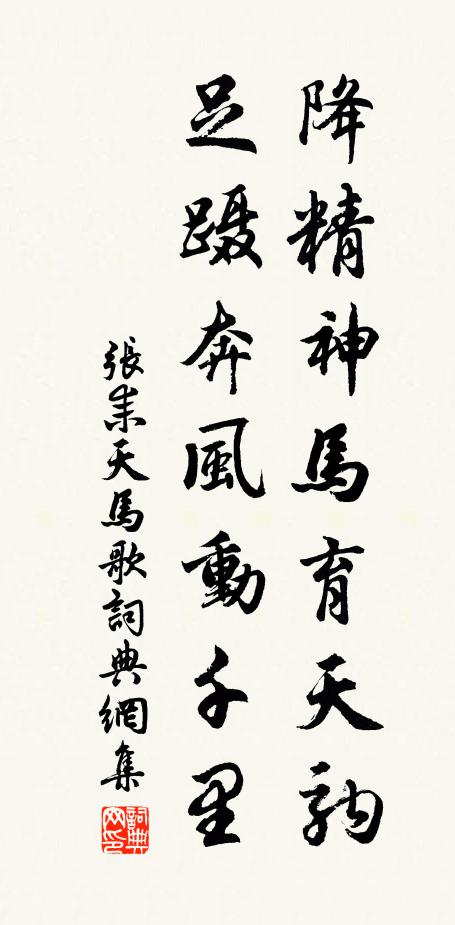 降精神馬育天駒
足蹑奔風動千里
張耒天馬歌詞典網集
詞典网印